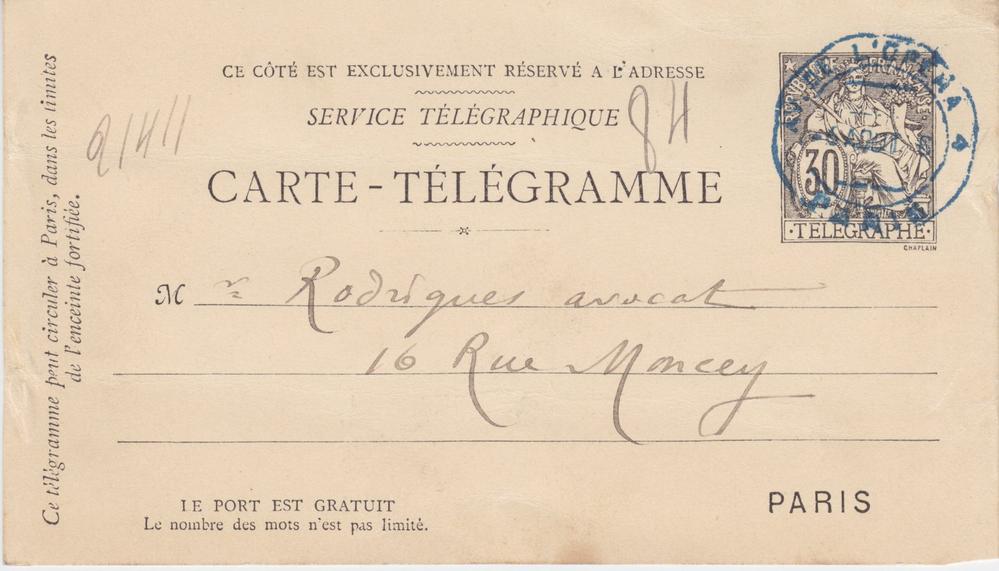 CE CÔTÉ EST EXCLUSIVEMENT RÉSERVÉ A L'ADRESSE
SERVICE TÉLÉGRAPHIQUE
CARTE-TÉLÉGRAMME
Ce télégramme peut circuler à Paris, dans les limites
de l'enceinte fortifiée.
30
·TELEGRAPHE·
CHAPLAIN
PARIS
Mr Rodrigues avocat
16 Rue Moncey
LE PORT EST GRATUIT
Le nombre des mots n'est pas limité.
PARIS